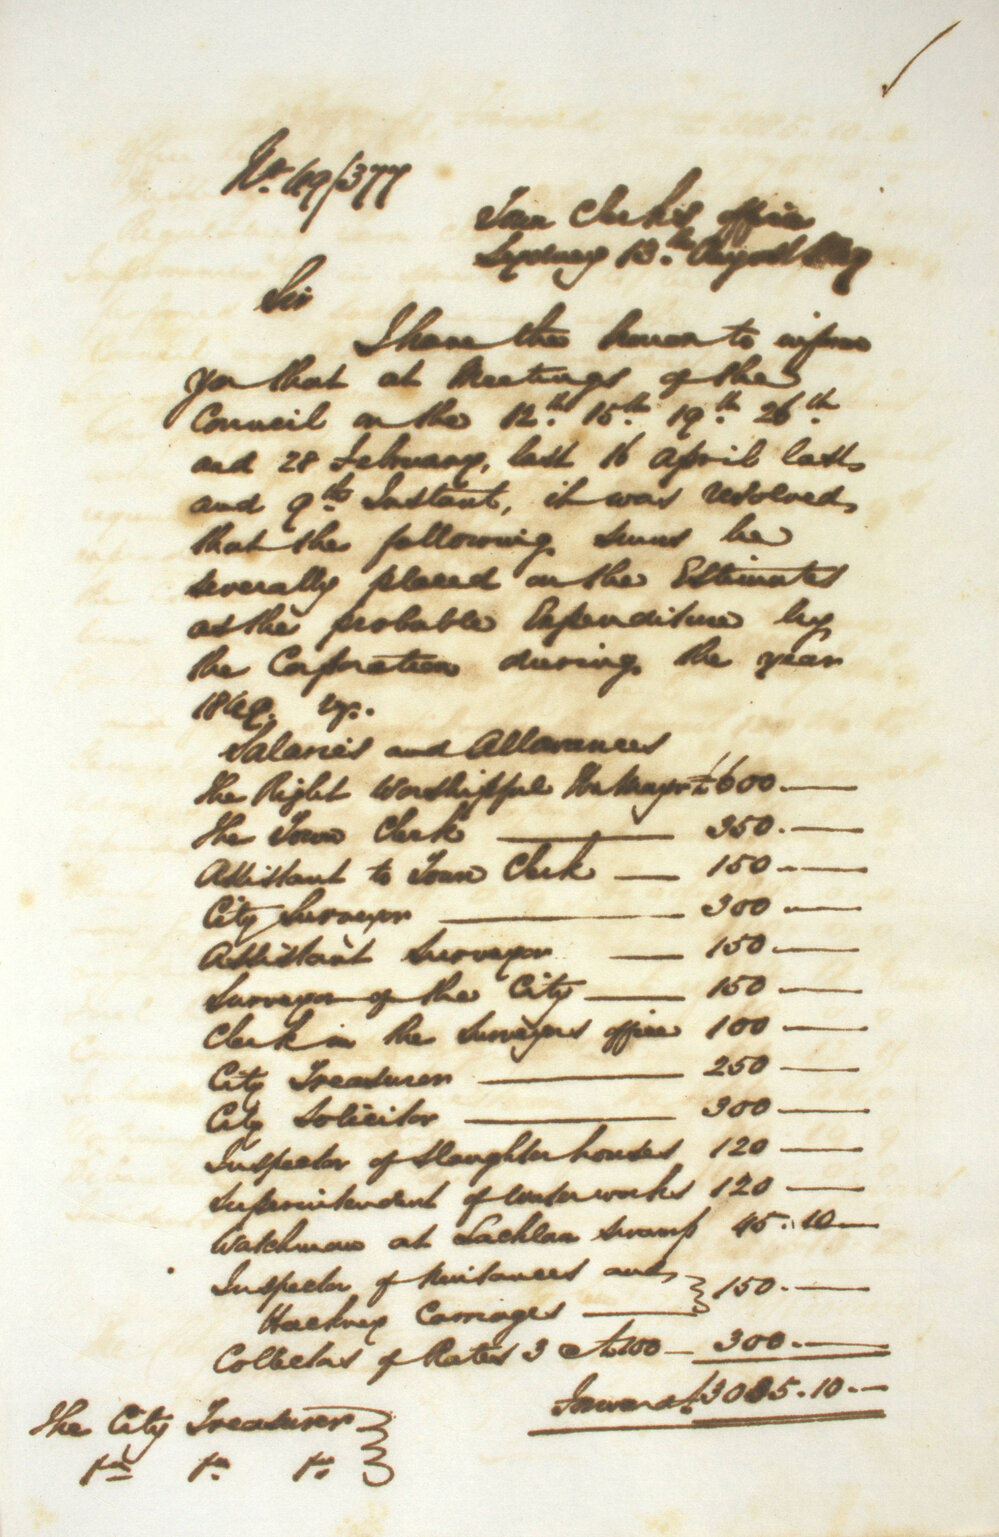 No. 49/377
Town Clerk's office
Sydney 13th August 1849
Sir
I have the honor to inform
you that at Meetings of the
Council on the 12th 15th 19th 26th
and 28 February, last 16 April last
and 9th Instant, it was resolved
that the following sums be
severally placed on the Estimates
as the probable Expenditure by
the Corporation during the year
1849. viz.
Salaries and Allowances
The Right Worshipful The Mayor £600.—
The Town Clerk — 350.—
Assistant to Town Clerk — 150.—
City Surveyor — 300.—
Assistant Surveyor — 150.—
Surveyor of the City — 150 —
Clerk in the Surveyors office 100 —
City Treasurer — 250 —
City Solicitor — 300 —
Inspector of Slaughter houses 120 —
Superintendent of Water works 120 —
Watchman at Lachlan Swamp 45.10—
Inspector of Nuisances and } 150.—
Hackney Carriages —
Collectors of Rates 3 @ £100 — 300.—
Forward £3085.10.—
The City Treasurer